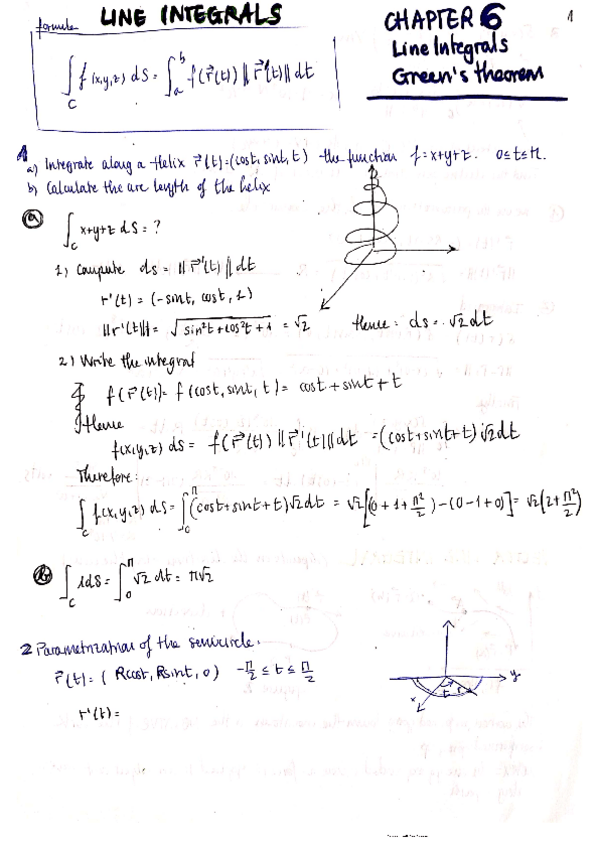 LINE INTEGRALS
CHAPTER 6
1
Line Integrals
Green's theorem
formula
∫_C f(x,y,z) ds = ∫_a^b f(r⃗(t)) ‖r⃗'(t)‖ dt
1
a) Integrate along a Helix r⃗(t)=(cost, sint, t) the function f=x+y+z. 0≤t≤π.
b) Calculate the arc length of the helix
a)
∫_C x+y+z ds = ?
1) Compute ds = ‖r⃗'(t)‖ dt
r'(t) = (-sint, cost, 1)
‖r'(t)‖ = √(sin²t+cos²t+1) = √2 Hence: ds = √2 dt
2) Write the integral
f(r⃗(t)) = f(cost, sint, t) = cost + sint + t
Hence
f(x,y,z) ds = f(r⃗(t)) ‖r⃗'(t)‖ dt = (cost+sint+t) √2 dt
Therefore:
∫_C f(x,y,z) ds = ∫_0^π (cost+sint+t)√2 dt = √2[(0+1+π²/2) - (0-1+0)] = √2(2+π²/2)
b) ∫_C 1ds = ∫_0^π √2 dt = π√2
2 Parametrization of the semicircle.
r⃗(t) = (Rcost, Rsint, 0) -π/2 ≤ t ≤ π/2
r'(t) =
x
t
r
y